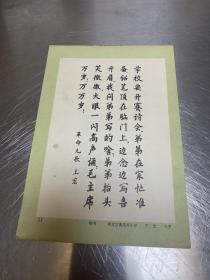 学校要开赛诗会，弟弟在家忙准
备，铅笔顶在脑门上，边念边写喜
开眉。我问弟弟写的啥，弟弟抬头
笑微微，大眼一闪高声诵：毛主席
万岁！万万岁！
革命儿歌 王宏